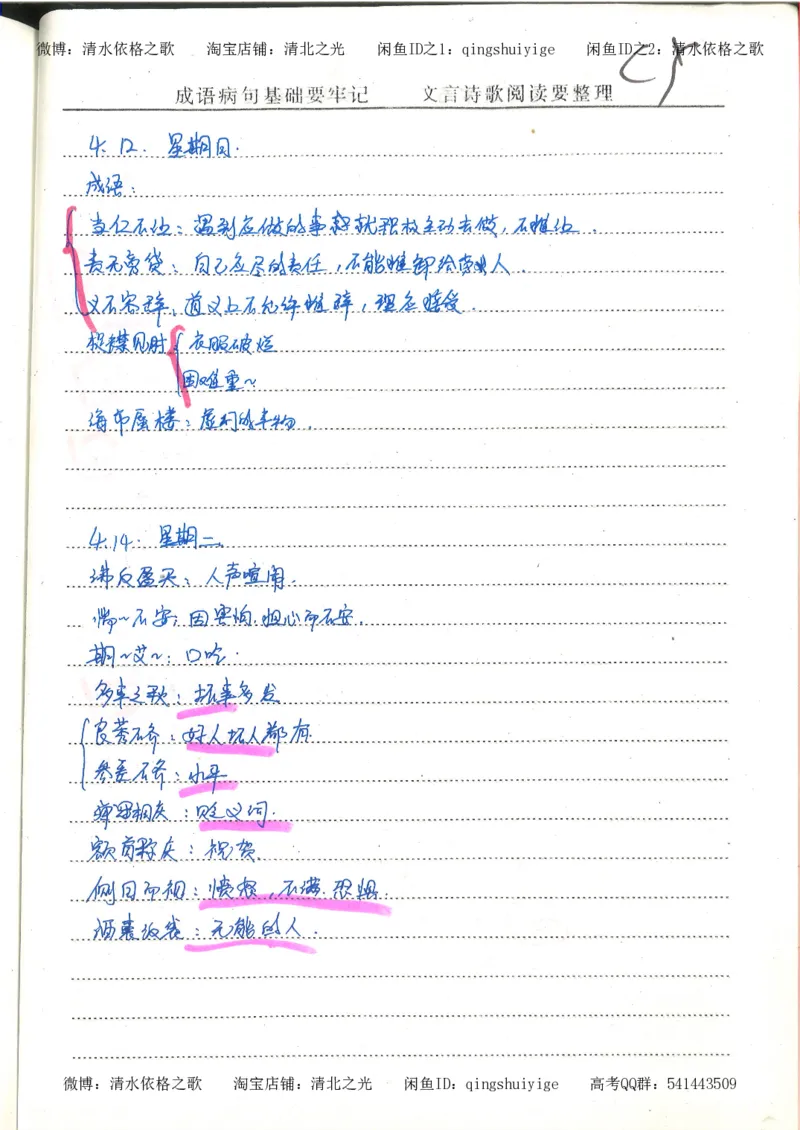 微博：清水依格之歌 淘宝店铺：清北之光 闲鱼ID之1：qingshuiyige 闲鱼ID之2：清水依格之歌
成语病句基础要牢记 文言诗歌阅读要整理
4.12. 星期日.
成语：
当仁不让：遇到应做的事就积极主动去做，不推让.
责无旁贷：自己应尽的责任，不能推卸给旁人.
义不容辞：道义上不允许推辞，理应接受.
捉襟见肘 衣服破烂
困难重~
海市蜃楼：虚幻的事物.
4.14. 星期二.
沸反盈天：人声喧闹.
惴~不安：因害怕.担心而不安.
期~艾~：口吃.
多事之秋：坏事多发
良莠不齐：好人坏人都有.
参差不齐：水平
弹冠相庆：贬义词.
额手称庆：祝贺.
侧目而视：愤怒，不满.恐惧.
酒囊饭袋：无能的人.
微博：清水依格之歌 淘宝店铺：清北之光 闲鱼ID：qingshuiyige 高考QQ群：541443509